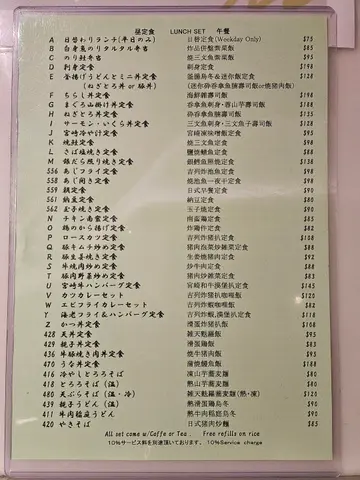 昼定食 LUNCH SET 午餐
A 日替わりランチ(平日のみ) 日替定食(Weekday Only) $75
B 白身魚のリタルタル弁当 炸品併魁紫飯 $85
C のり鮭弁当 燒三文魚紫飯 $95
D 刺身定食 刺身定食 $198
E 釜揚げうどんとミニ丼定食 釜揚烏冬&迷你飯定食 $128
(ねぎとろ丼 or 豚丼) (迷你碎吞拿魚腩壽司飯or燒豬肉飯)
F ちらし丼定食 海鮮雜壽司飯 $198
G まぐろ山掛け丼定食 吞拿魚刺身・蓉山芋壽司飯 $188
H ねぎとろ丼定食 碎吞拿魚腩壽司飯 $125
I サーモン・いくら丼定食 三文魚刺身・三文魚子壽司飯 $188
J 宮崎冷や汁定食 宮崎凍味噌飯定食 $98
K 焼鮭定食 燒三文魚定食 $98
L さば塩焼き定食 鹽燒鯖魚定食 $88
M 銀だら照り焼き定食 銀鱈魚照燒定食 $158
556 あじフライ定食 吉列炸池魚定食 $88
558 あじ開き定食 燒池魚一夜干定食 $98
559 朝定食 日式早餐定食 $90
561 納豆定食 納豆定食 $80
562 玉子焼き定食 玉子燒定食 $90
N チキン南蛮定食 南蛮雞定食 $85
O 鶏のから揚げ定食 炸雞件定食 $82
P ロースカツ定食 吉列炸豬扒定食 $138
Q 豚キムチ炒め定食 豬肉泡菜炒雜菜定食 $88
R 豚生姜焼き定食 生姜燒豬肉定食 $92
S 牛焼肉炒め定食 炒牛肉定食 $88
T 豚肉野菜炒め定食 豬肉炒雜菜定食 $83
U 宮崎牛ハンバーグ定食 宮崎和牛漢堡扒定食 $145
V カツカレーセット 吉列炸豬扒咖喱飯 $120
W エビフライカレーセット 吉列炸蝦咖喱飯 $82
Y 海老フライ&ハンバーグ定食 吉列炸蝦,漢堡扒定食 $118
Z かつ丼定食 滑蛋炸豬扒飯 $108
428 天丼定食 雜天麩羅飯 $93
429 親子丼定食 滑蛋雞飯 $83
436 牛豚焼き肉丼定食 燒牛豬肉飯 $95
470 うな丼定食 蒲燒鰻魚飯 $188
416 冷やしとろろそば 凍山芋蕎麦麵 $80
418 とろろそば(温) 熱山芋蕎麦麵 $80
480 天ぷらそば(温・冷) 雜天麩羅蕎麦麵(熱・凍) $120
439 親子うどん(温) 熱滑蛋雞烏冬 $90
411 牛肉稲庭うどん 熱牛肉稲庭烏冬 $90
420 やきそば 日式豬肉炒麵 $85
All set come w/Coffe or Tea . Free refills on rice
10%サービス料を別途頂いております. 10%Service charge